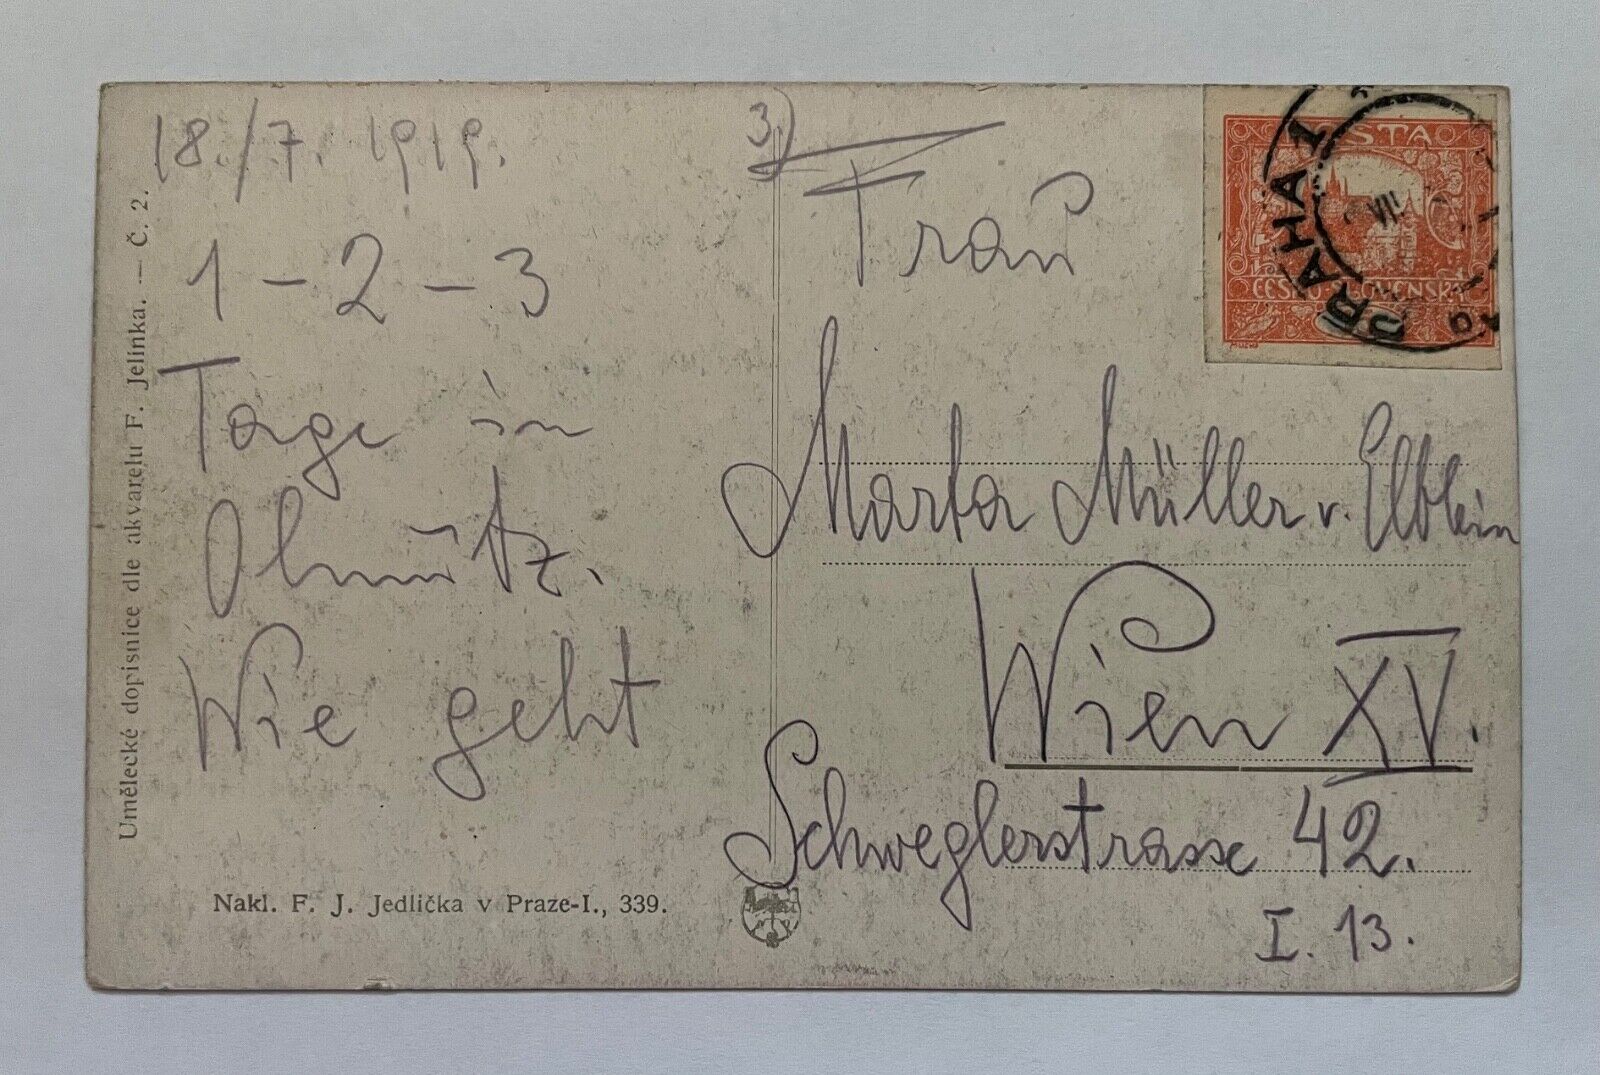 18./7. 1919.
1 - 2 - 3
Tage in
Olmütz.
Wie geht
3)
Frau
Marta Müller v.
Wien XV.
Schweglerstrasse 42.
I. 13.
Umělecké dopisnice dle akvarelu F. Jelínka. — Č. 2.
Nakl. F. J. Jedlička v Praze-I., 339.
POŠTA
ČESKO-SLOVENSKÁ
PRAHA 1
VII